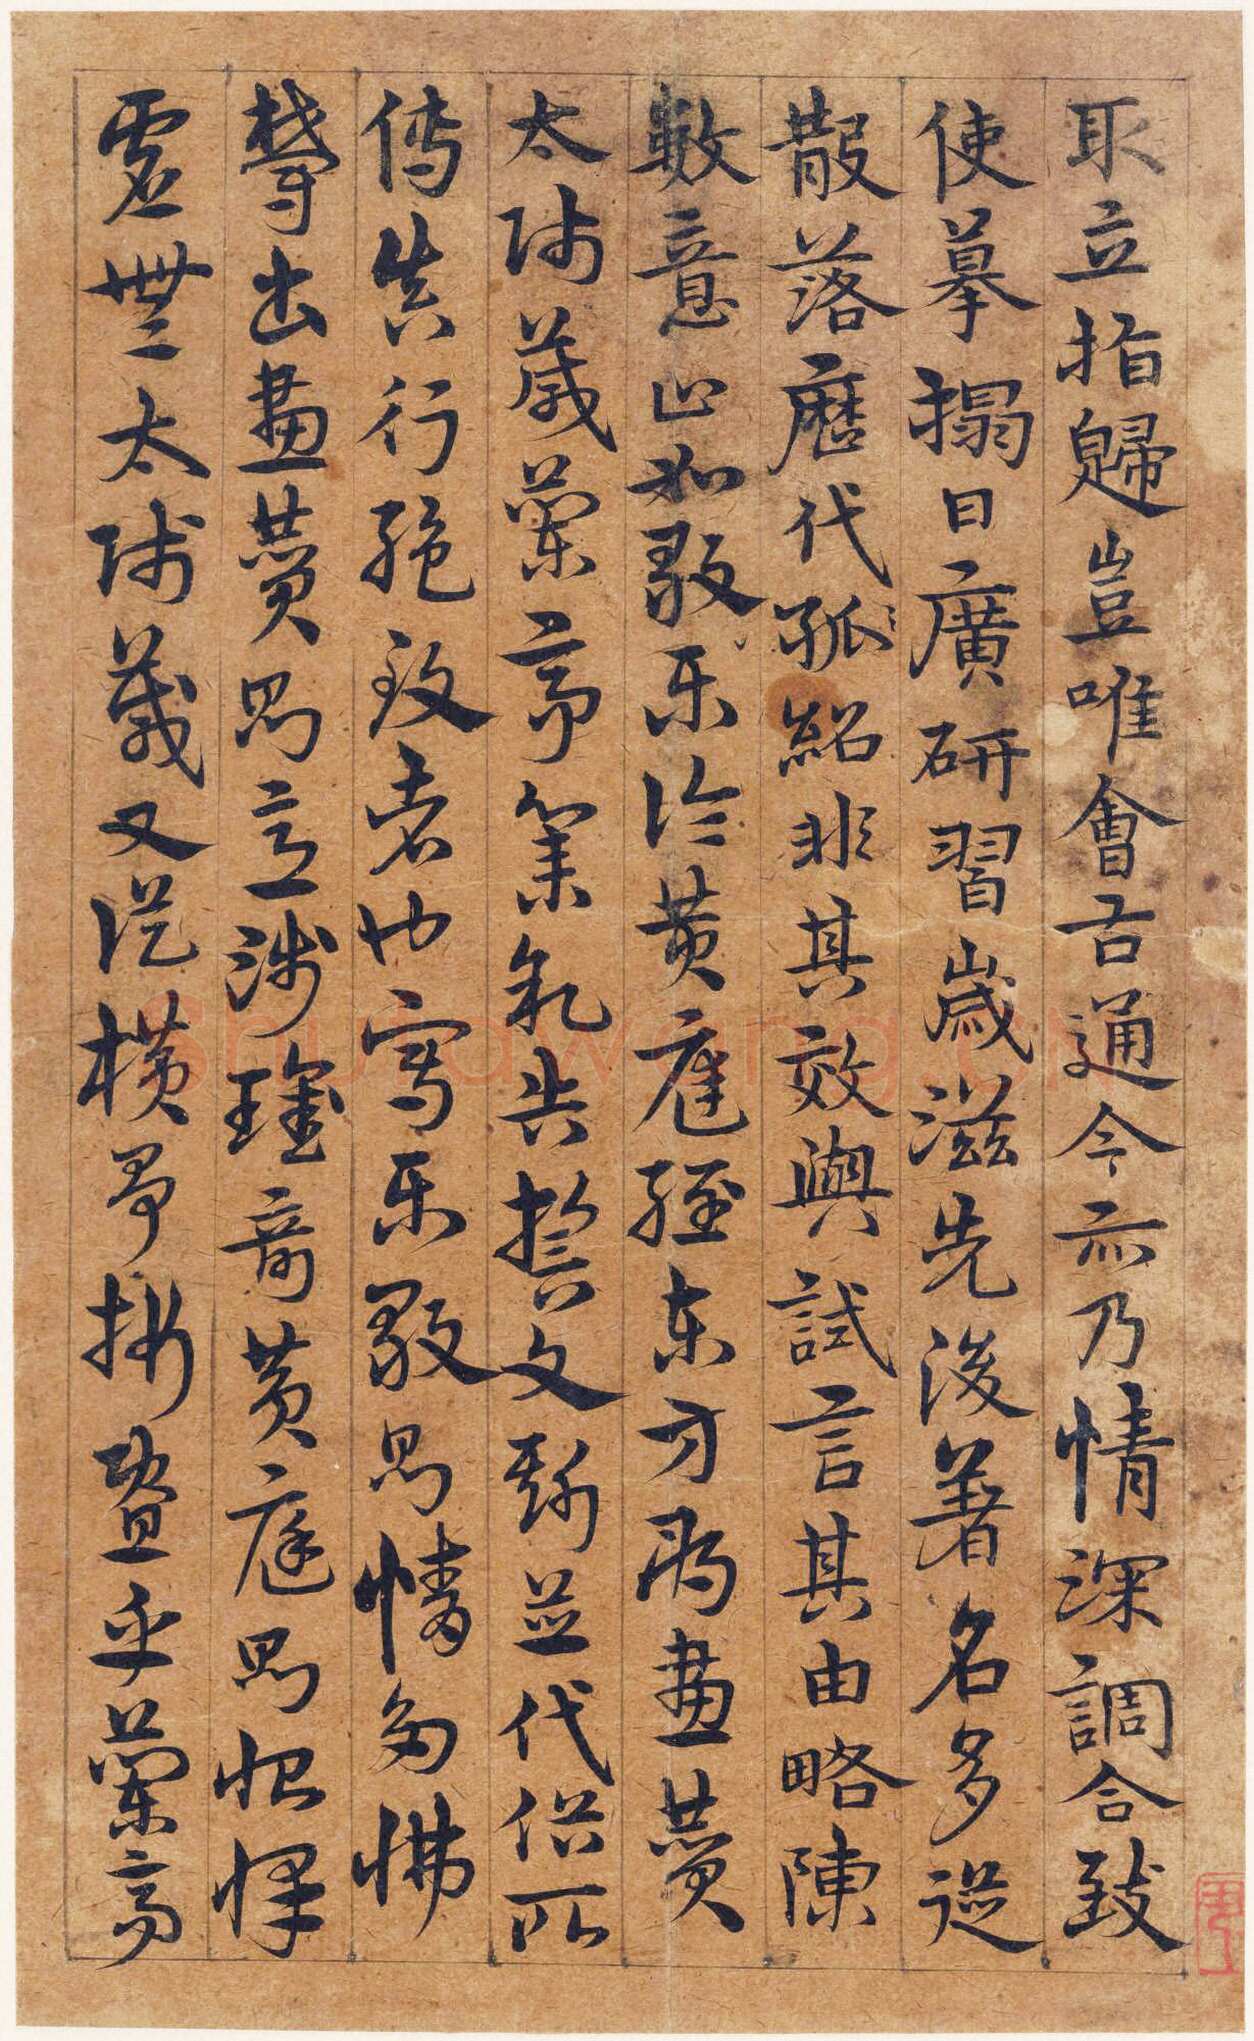 取立指歸豈唯會古通今亦乃情深調合致
使摹搨日廣研習歲滋先後著名多從
散落歷代孤紹非其效與試言其由略陳
數意止如毅樂論黃庭經東方朔畫讚
太師箴蘭亭集序告誓文斯並代俗所
傳真行絕致者也寫樂毅則情多怫
鬱書畫讚則意涉瓌奇黃庭則怡懌
虛無太師箴又從橫爭折暨乎蘭亭
Shufawang.CN